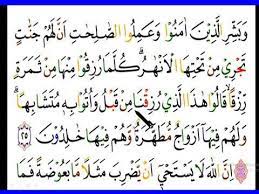 وَبَشِّرِ الَّذِينَ آمَنُوا وَعَمِلُوا الصَّلِحَتِ أَنَّ لَهُمْ جَنَّتٍ
تَجْرِي مِنْ تَحْتِهَا الْأَنْهَرُ كُلَّمَا رُزِقُوا مِنْهَا مِنْ ثَمَرَةٍ
رِزْقًا قَالُوا هَذَا الَّذِي رُزِقْنَا مِنْ قَبْلُ وَأُتُوا بِهِ مُتَشَابِهًا
وَلَهُمْ فِيهَا أَزْوَاجٌ مُطَهَّرَةٌ وَهُمْ فِيهَا خَلِدُونَ ٢٥
إِنَّ اللَّهَ لَا يَسْتَحْيِي أَنْ يَضْرِبَ مَثَلًا مَا بَعُوضَةً فَمَا